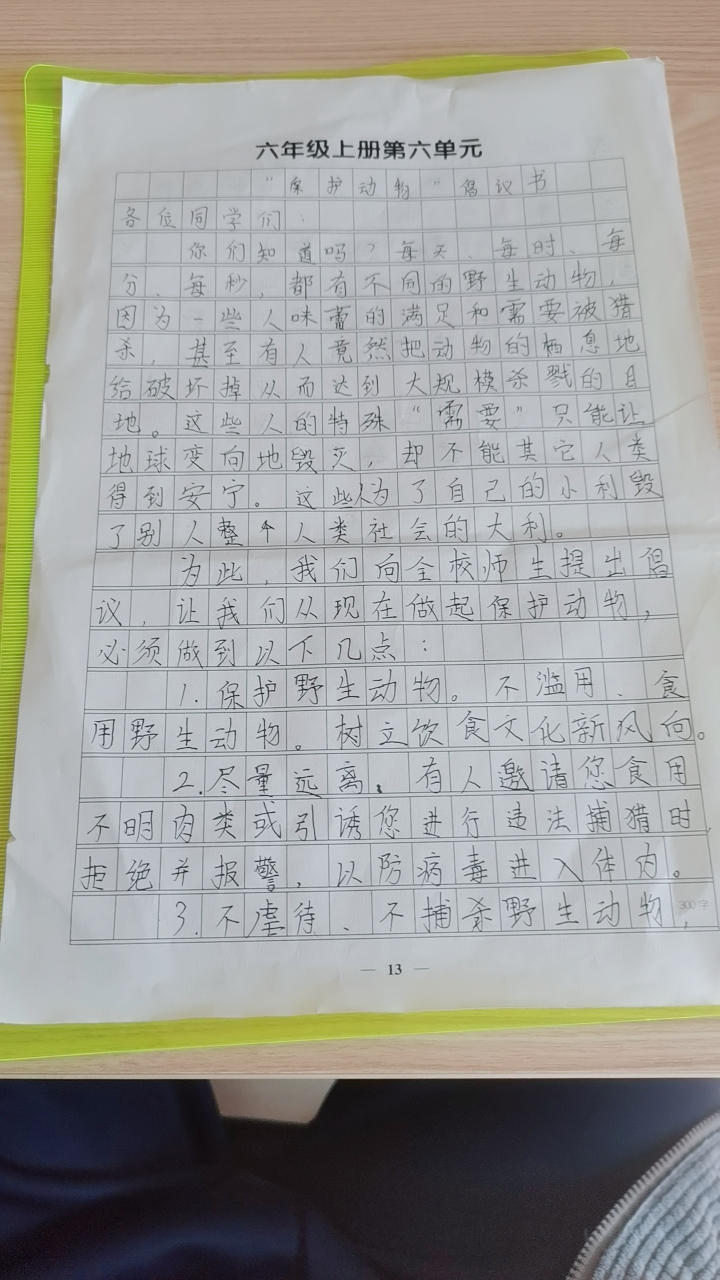 六年级上册第六单元
“保护动物”倡议书
各位同学们：
你们知道吗？每天、每时、每
分、每秒，都有不同的野生动物，
因为一些人味蕾的满足和需要被猎
杀，甚至有人竟然把动物的栖息地
给破坏掉从而达到大规模杀戮的目
地。这些人的特殊“需要”只能让
地球变向地毁灭，却不能其它人类
得到安宁。这些人为了自己的小利毁
了别人整个人类社会的大利。
为此，我们向全校师生提出倡
议，让我们从现在做起保护动物，
必须做到以下几点：
1.保护野生动物。不滥用、食
用野生动物。树立饮食文化新风向。
2.尽量远离。有人邀请您食用
不明肉类或引诱您进行违法捕猎时，
拒绝并报警，以防病毒进入体内。
3.不虐待、不捕杀野生动物，
300字
— 13 —